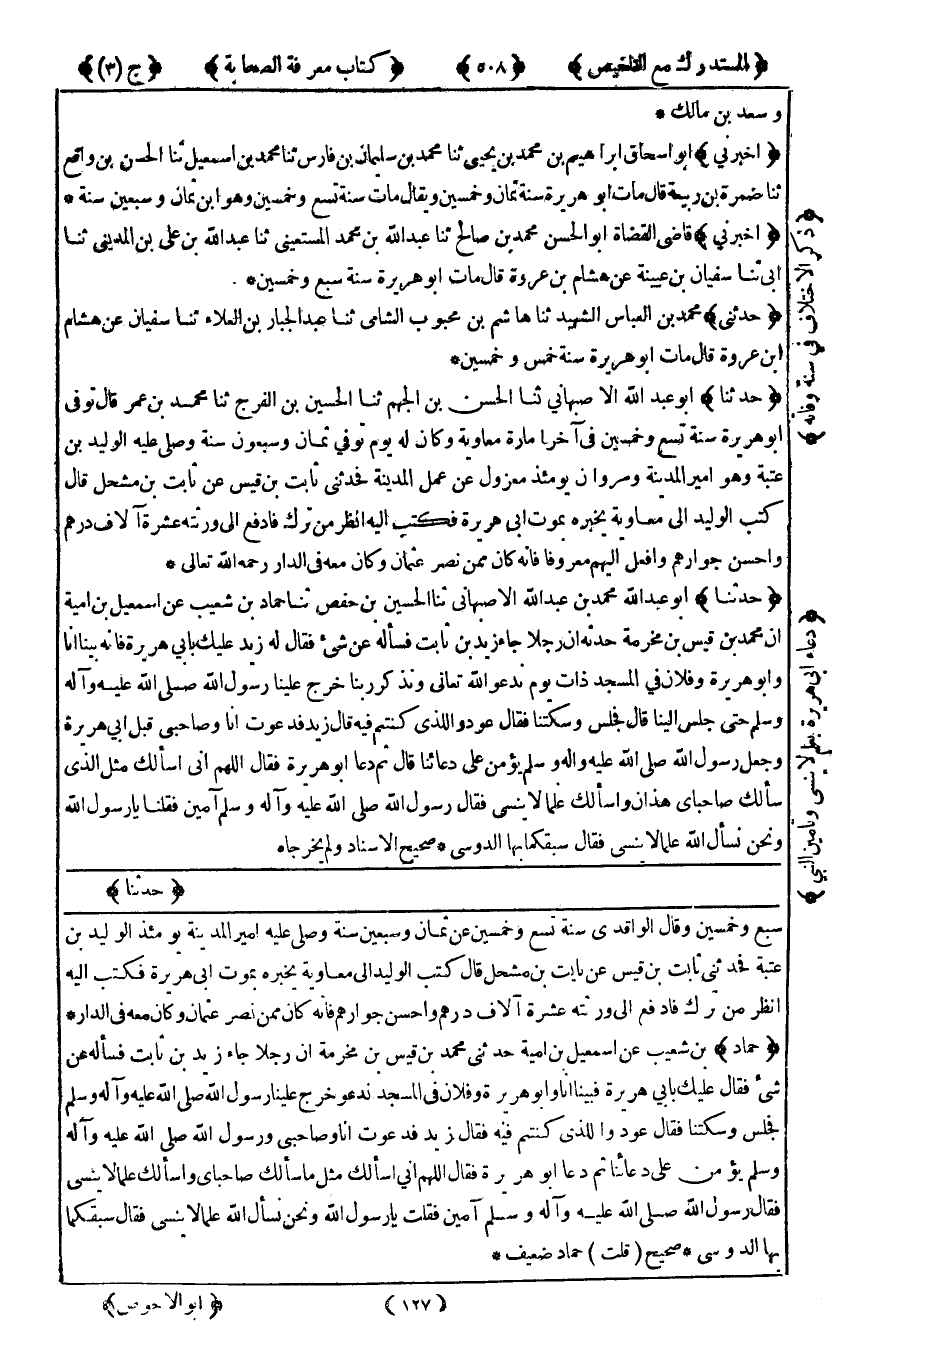 ﴿ المستدرك مع التلخيص ﴾ ﴿ ٥٠٨ ﴾ ﴿ كتاب معرفة الصحابة ﴾ ﴿ ج (٣) ﴾
و سعد بن مالك *
﴿ اخبرني ﴾ ابو اسحاق ابراهيم بن محمد بن يحيى ثنا محمد بن سليمان بن فارس ثنا محمد بن اسمعيل ثنا الحسن بن واقع
ثنا ضمرة بن ربيعة قال مات ابو هريرة سنة ثمان وخمسين ويقال مات سنة تسع وخمسين وهو ابن ثمان و سبعين سنة *
﴿ اخبرني ﴾ قاضى القضاة ابو الحسن محمد بن صالح ثنا عبدالله بن محمد المستعيني ثنا عبدالله بن على بن المديني ثنا
ابى ثنا سفيان بن عيينة عن هشام بن عروة قال مات ابو هريرة سنة سبع وخمسين * .
﴿ حدثني ﴾ محمد بن العباس الشهيد ثنا هاشم بن محبوب الشامى ثنا عبد الجبار بن العلاء ثنا سفيان عن هشام
ابن عروة قال مات ابو هريرة سنة خمس و خمسين *
﴿ حدثنا ﴾ ابو عبد الله الاصبهاني ثنا الحسن بن الجهم ثنا الحسين بن الفرج ثنا محمد بن عمر قال توفى
ابو هريرة سنة تسع وخمسين فى آخر امارة معاوية وكان له يوم توفي ثمان وسبعون سنة وصلى عليه الوليد بن
عتبة وهو امير المدينة ومروان يومئذ معزول عن عمل المدينة فحدثنى ثابت بن قيس عن ثابت بن مشحل قال
كتب الوليد الى معاوية يخبره بموت ابى هريرة فكتب اليه انظر من ترك فادفع الى ورثته عشرة آلاف درهم
واحسن جوارهم وافعل اليهم معروفا فانه كان ممن نصر عثمان وكان معه فى الدار رحمه الله تعالى *
﴿ حدثنا ﴾ ابو عبدالله محمد بن عبدالله الاصبهانى ثنا الحسين بن حفص ثنا حماد بن شعيب عن اسمعيل بن امية
ان محمد بن قيس بن مخرمة حدثه ان رجلا جاء زيد بن ثابت فسأله عن شئ فقال له زيد عليك بابي هريرة فانه بينا انا
وابو هريرة وفلان في المسجد ذات يوم ندعو الله تعالى ونذكر ربنا خرج علينا رسول الله صلى الله عليه وآله
وسلم حتى جلس الينا قال فجلس وسكتنا فقال عودوا للذى كنتم فيه قال زيد فدعوت انا وصاحبي قبل ابي هريرة
وجعل رسول الله صلى الله عليه واله و سلم يؤمن على دعائنا قال ثم دعا ابو هريرة فقال اللهم انى اسألك مثل الذى
سألك صاحباى هذان واسألك علما لا ينسى فقال رسول الله صلى الله عليه وآله و سلم آمين فقلنا يا رسول الله
ونحن نسأل الله علما لا ينسى فقال سبقكما بها الدوسى * صحيح الاسناد ولم يخرجاه
﴿ حدثنا ﴾
سبع وخمسين وقال الواقدى سنة تسع وخمسين عن ثمان وسبعين سنة وصلى عليه امير المدينة يومئذ الوليد بن
عتبة فحدثنى ثابت بن قيس عن ثابت بن مشحل قال كتب الوليد الى معاوية يخبره بموت ابى هريرة فكتب اليه
انظر من ترك فادفع الى ورثته عشرة آلاف درهم واحسن جوارهم فانه كان ممن نصر عثمان وكان معه فى الدار *
﴿ حماد ﴾ بن شعيب عن اسمعيل بن امية حدثنى محمد بن قيس بن مخرمة ان رجلا جاء زيد بن ثابت فسأله عن
شئ فقال عليك بابي هريرة فبينا انا وابو هريرة وفلان فى المسجد ندعو خرج علينا رسول الله صلى الله عليه وآله وسلم
فجلس وسكتنا فقال عودوا للذى كنتم فيه فقال زيد فدعوت انا وصاحبى ورسول الله صلى الله عليه وآله
وسلم يؤمن على دعائنا ثم دعا ابو هريرة فقال اللهم اني اسألك مثل ما سألك صاحباى واسألك علما لا ينسى
فقال رسول الله صلى الله عليه وآله و سلم آمين فقلت يا رسول الله ونحن نسأل الله علما لا ينسى فقال سبقكما
بها الدوسى * صحيح ( قلت ) حماد ضعيف *
(١٢٧) ﴿ ابو الاحوص ﴾
﴿ ذكر الاختلاف في سنة وفاته ﴾
﴿ دعاء ابى هريرة بعلم لا ينسى وتأمين النبي ﴾